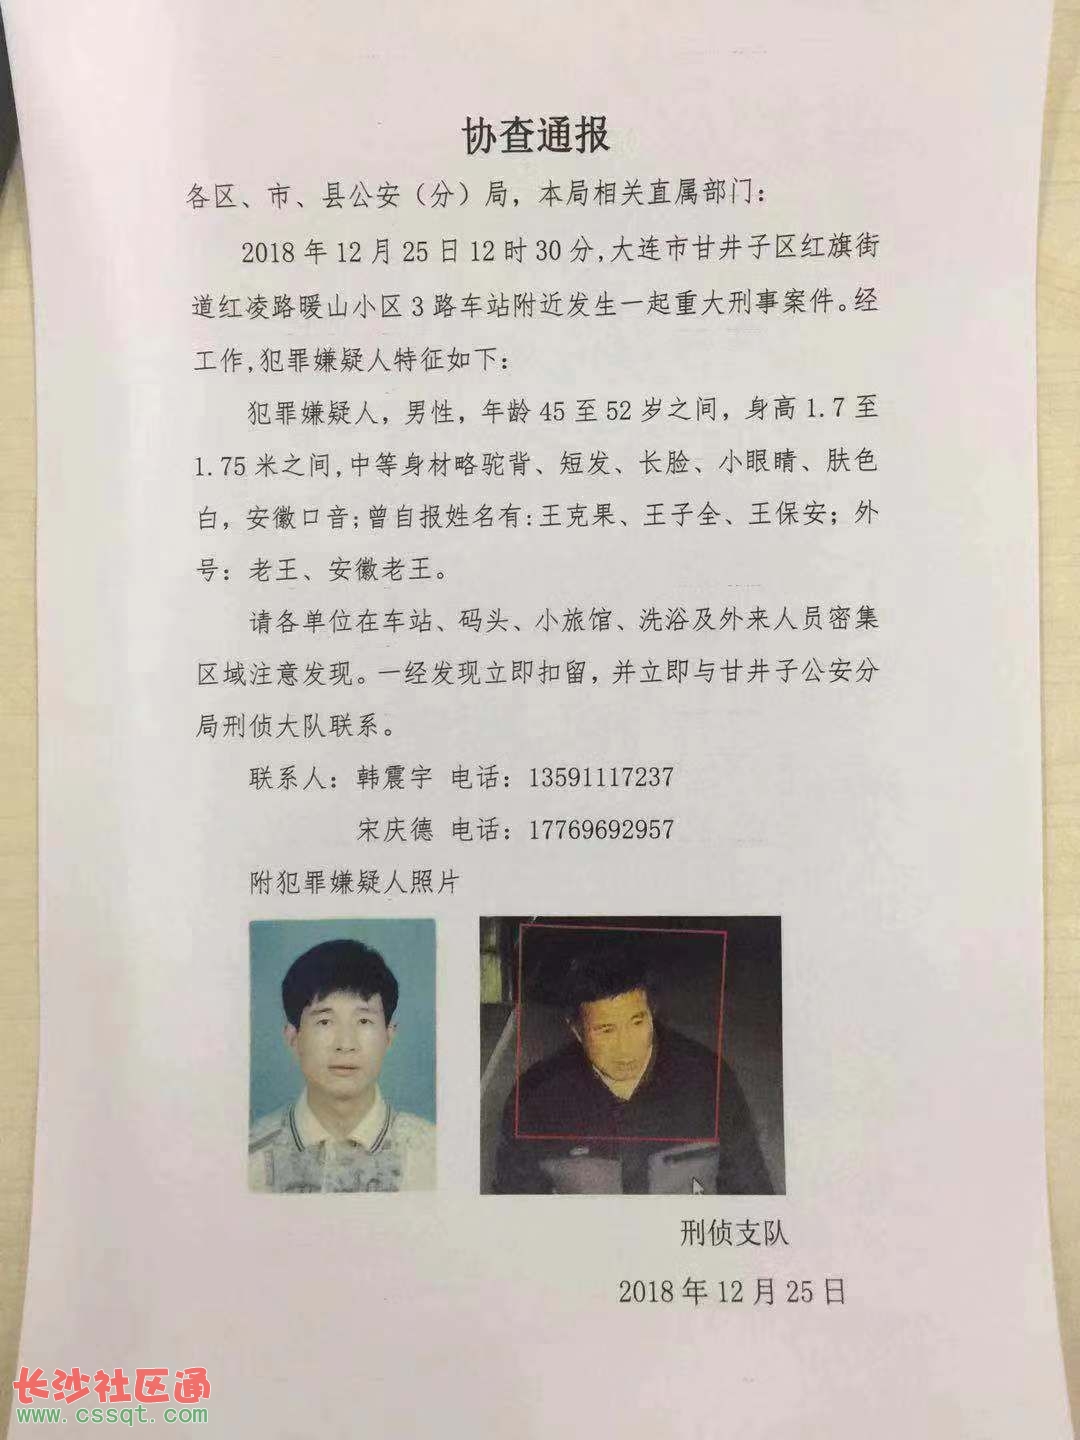 协查通报
各区、市、县公安（分）局，本局相关直属部门：
2018年12月25日12时30分,大连市甘井子区红旗街
道红凌路暖山小区3路车站附近发生一起重大刑事案件。经
工作,犯罪嫌疑人特征如下：
犯罪嫌疑人，男性，年龄45至52岁之间，身高1.7至
1.75米之间,中等身材略驼背、短发、长脸、小眼睛、肤色
白，安徽口音;曾自报姓名有:王克果、王子全、王保安；外
号：老王、安徽老王。
请各单位在车站、码头、小旅馆、洗浴及外来人员密集
区域注意发现。一经发现立即扣留，并立即与甘井子公安分
局刑侦大队联系。
联系人：韩震宇 电话：13591117237
宋庆德 电话：17769692957
附犯罪嫌疑人照片
刑侦支队
2018年12月25日
长沙社区通
www.cssqt.com